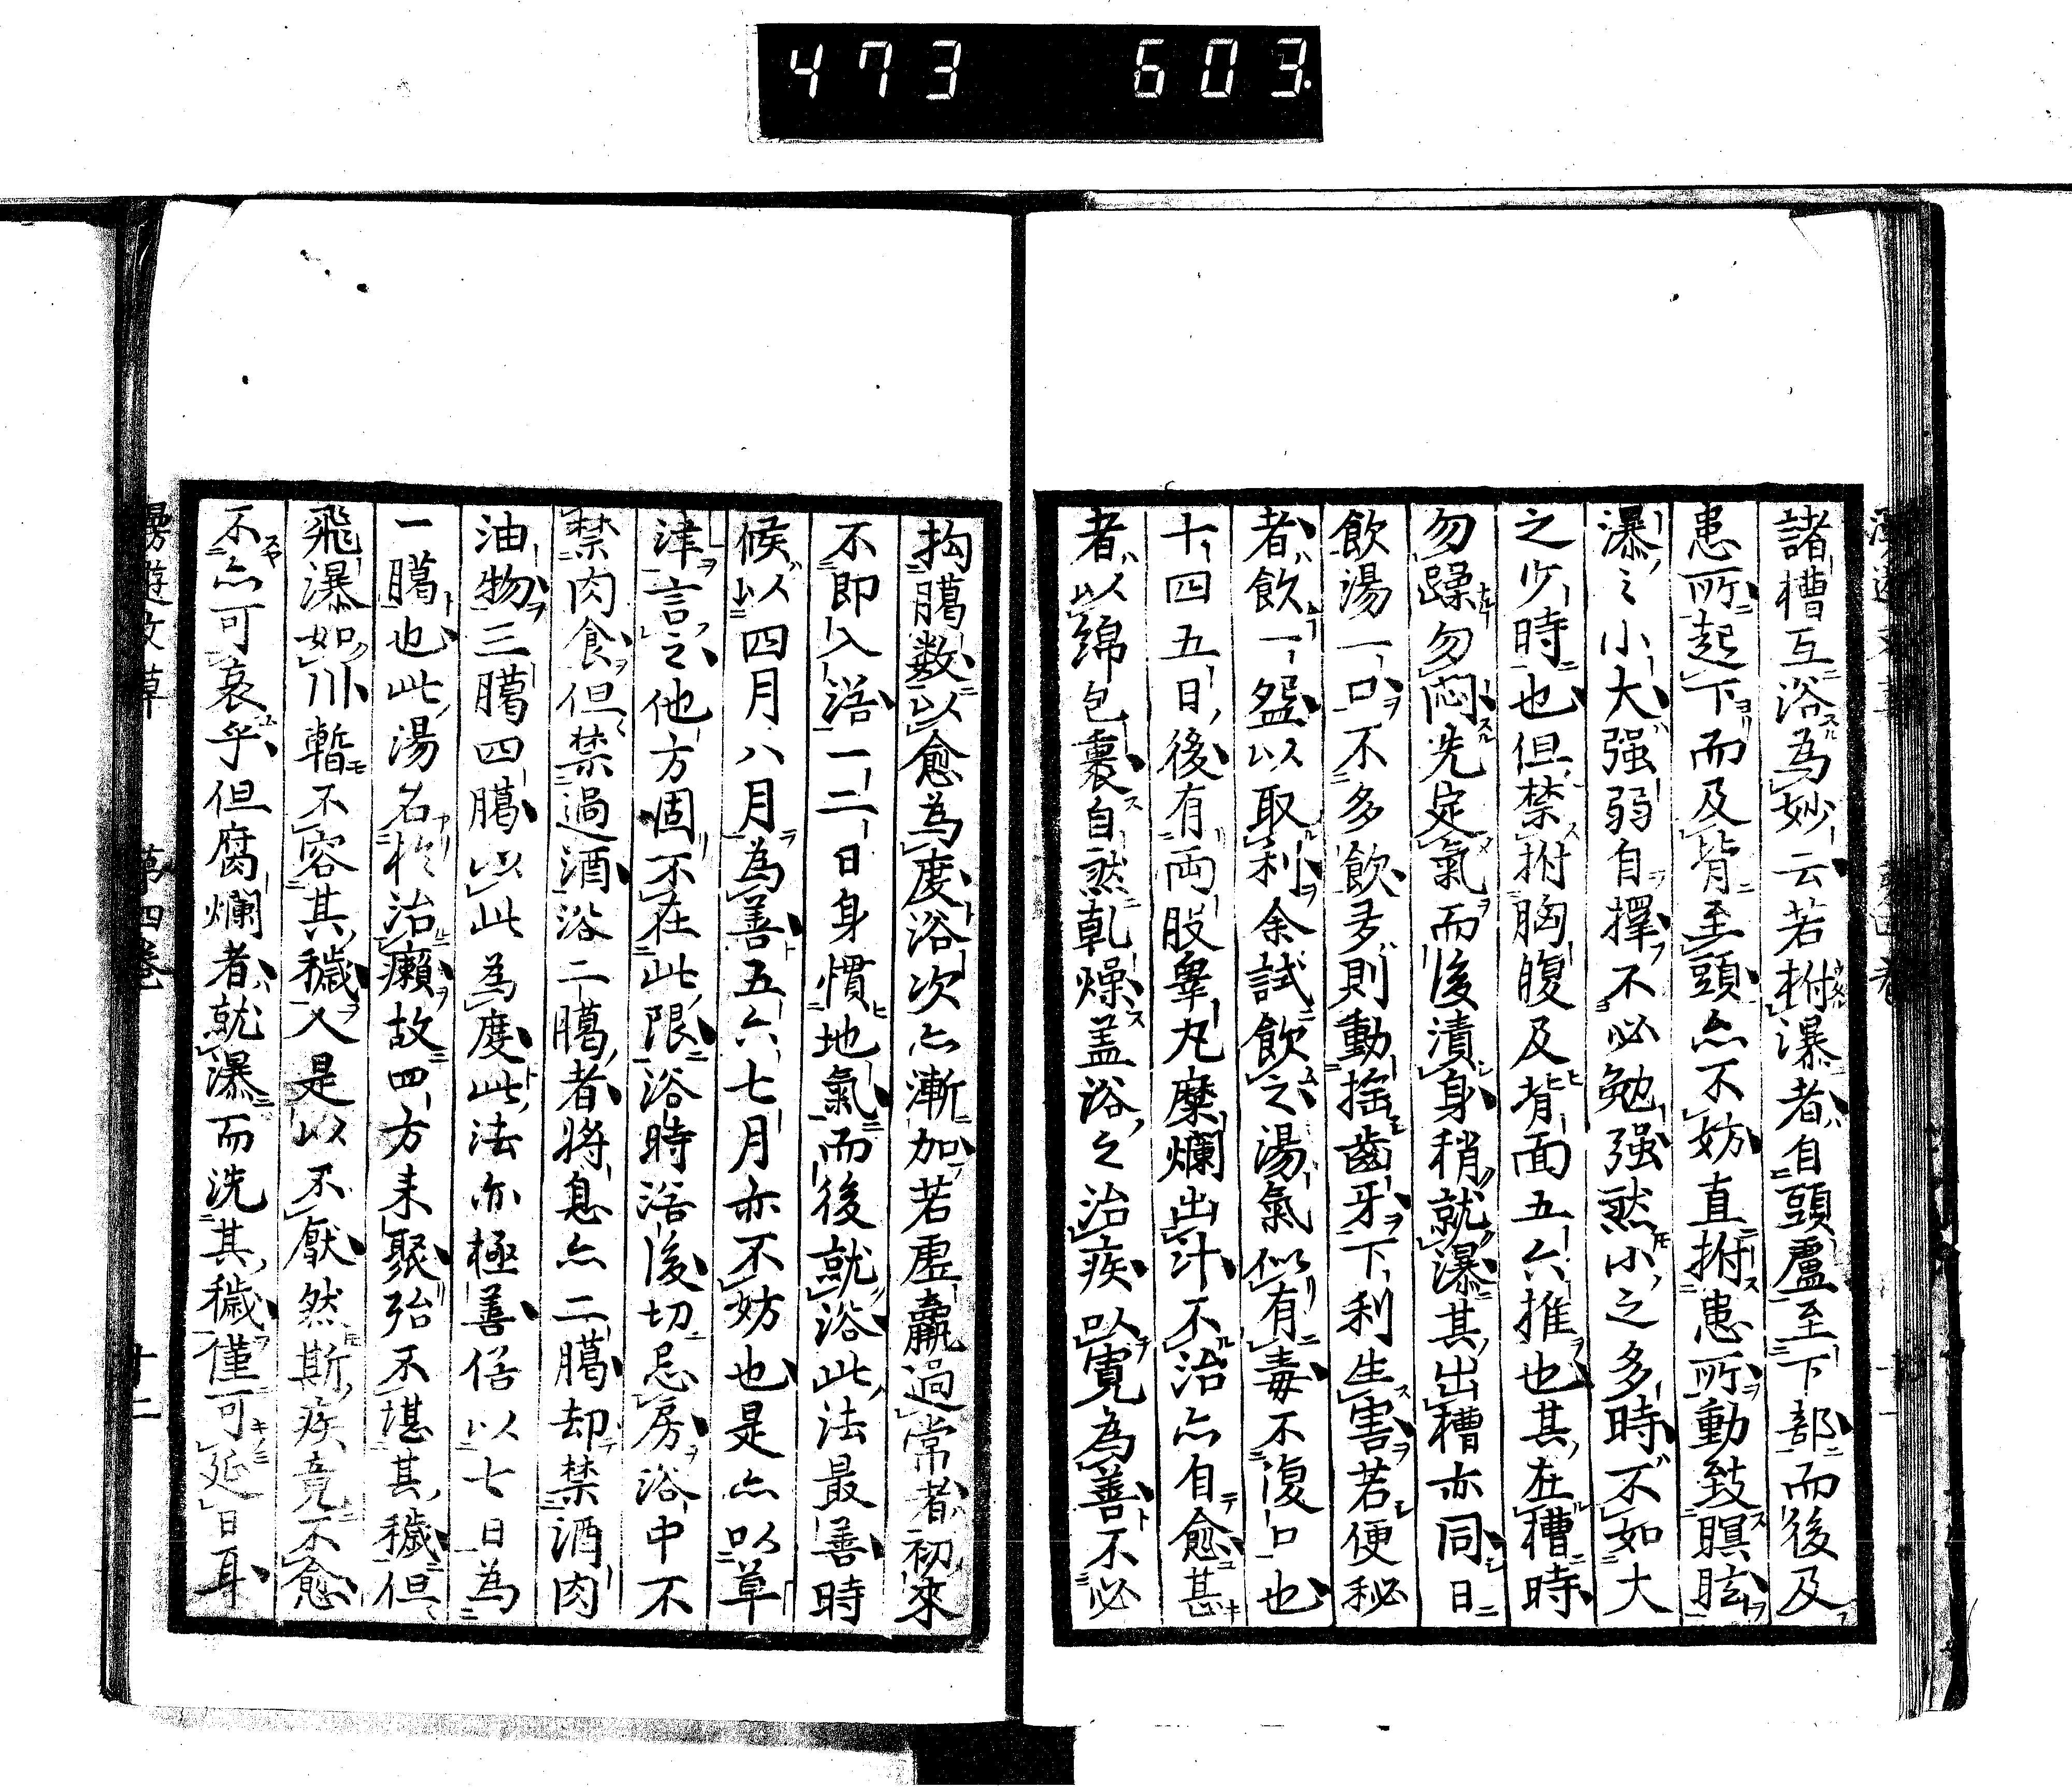 473 603
諸槽互浴為妙云若拊瀑者自頭盧至下部而後及
患所起下而及背至頭亦不妨直拊患所動致瞑眩
瀑之小大强弱自擇不必勉强然小之多時不如大
之少時也但禁拊胸腹及背面五六推也其在槽時
勿躁勿悶先定氣而後漬身稍就瀑其出槽亦同日
飲湯一口不多飲多則動搖齒牙下利生害若便秘
者飲一盌以取利余試飲之湯氣似有毒不復口也
十四五日後有両股睾丸糜爛出汁不治亦自愈甚
者以綿包裹自然乾燥盖浴之治疾以寛為善不必
拘臈数以愈為度浴次亦漸加若虚羸過常者初來
不即入浴一二日身慣地氣而後就浴此法最善時
候以四月八月為善五六七月亦不妨也是亦以草
津言之他方固不在此限浴時浴後切忌房浴中不
禁肉食但禁過酒浴二臈者將息亦二臈却禁酒肉
油物三臈四臈以此為度此法亦極善俗以七日為
一臈也此湯名於治癩故四方来聚殆不堪其穢但
飛瀑如川暫不容其穢人是以不厭然斯疾竟不愈
不亦可哀乎但腐爛者就瀑而洗其穢僅可延日耳
漫遊文草 第四巻 廿二